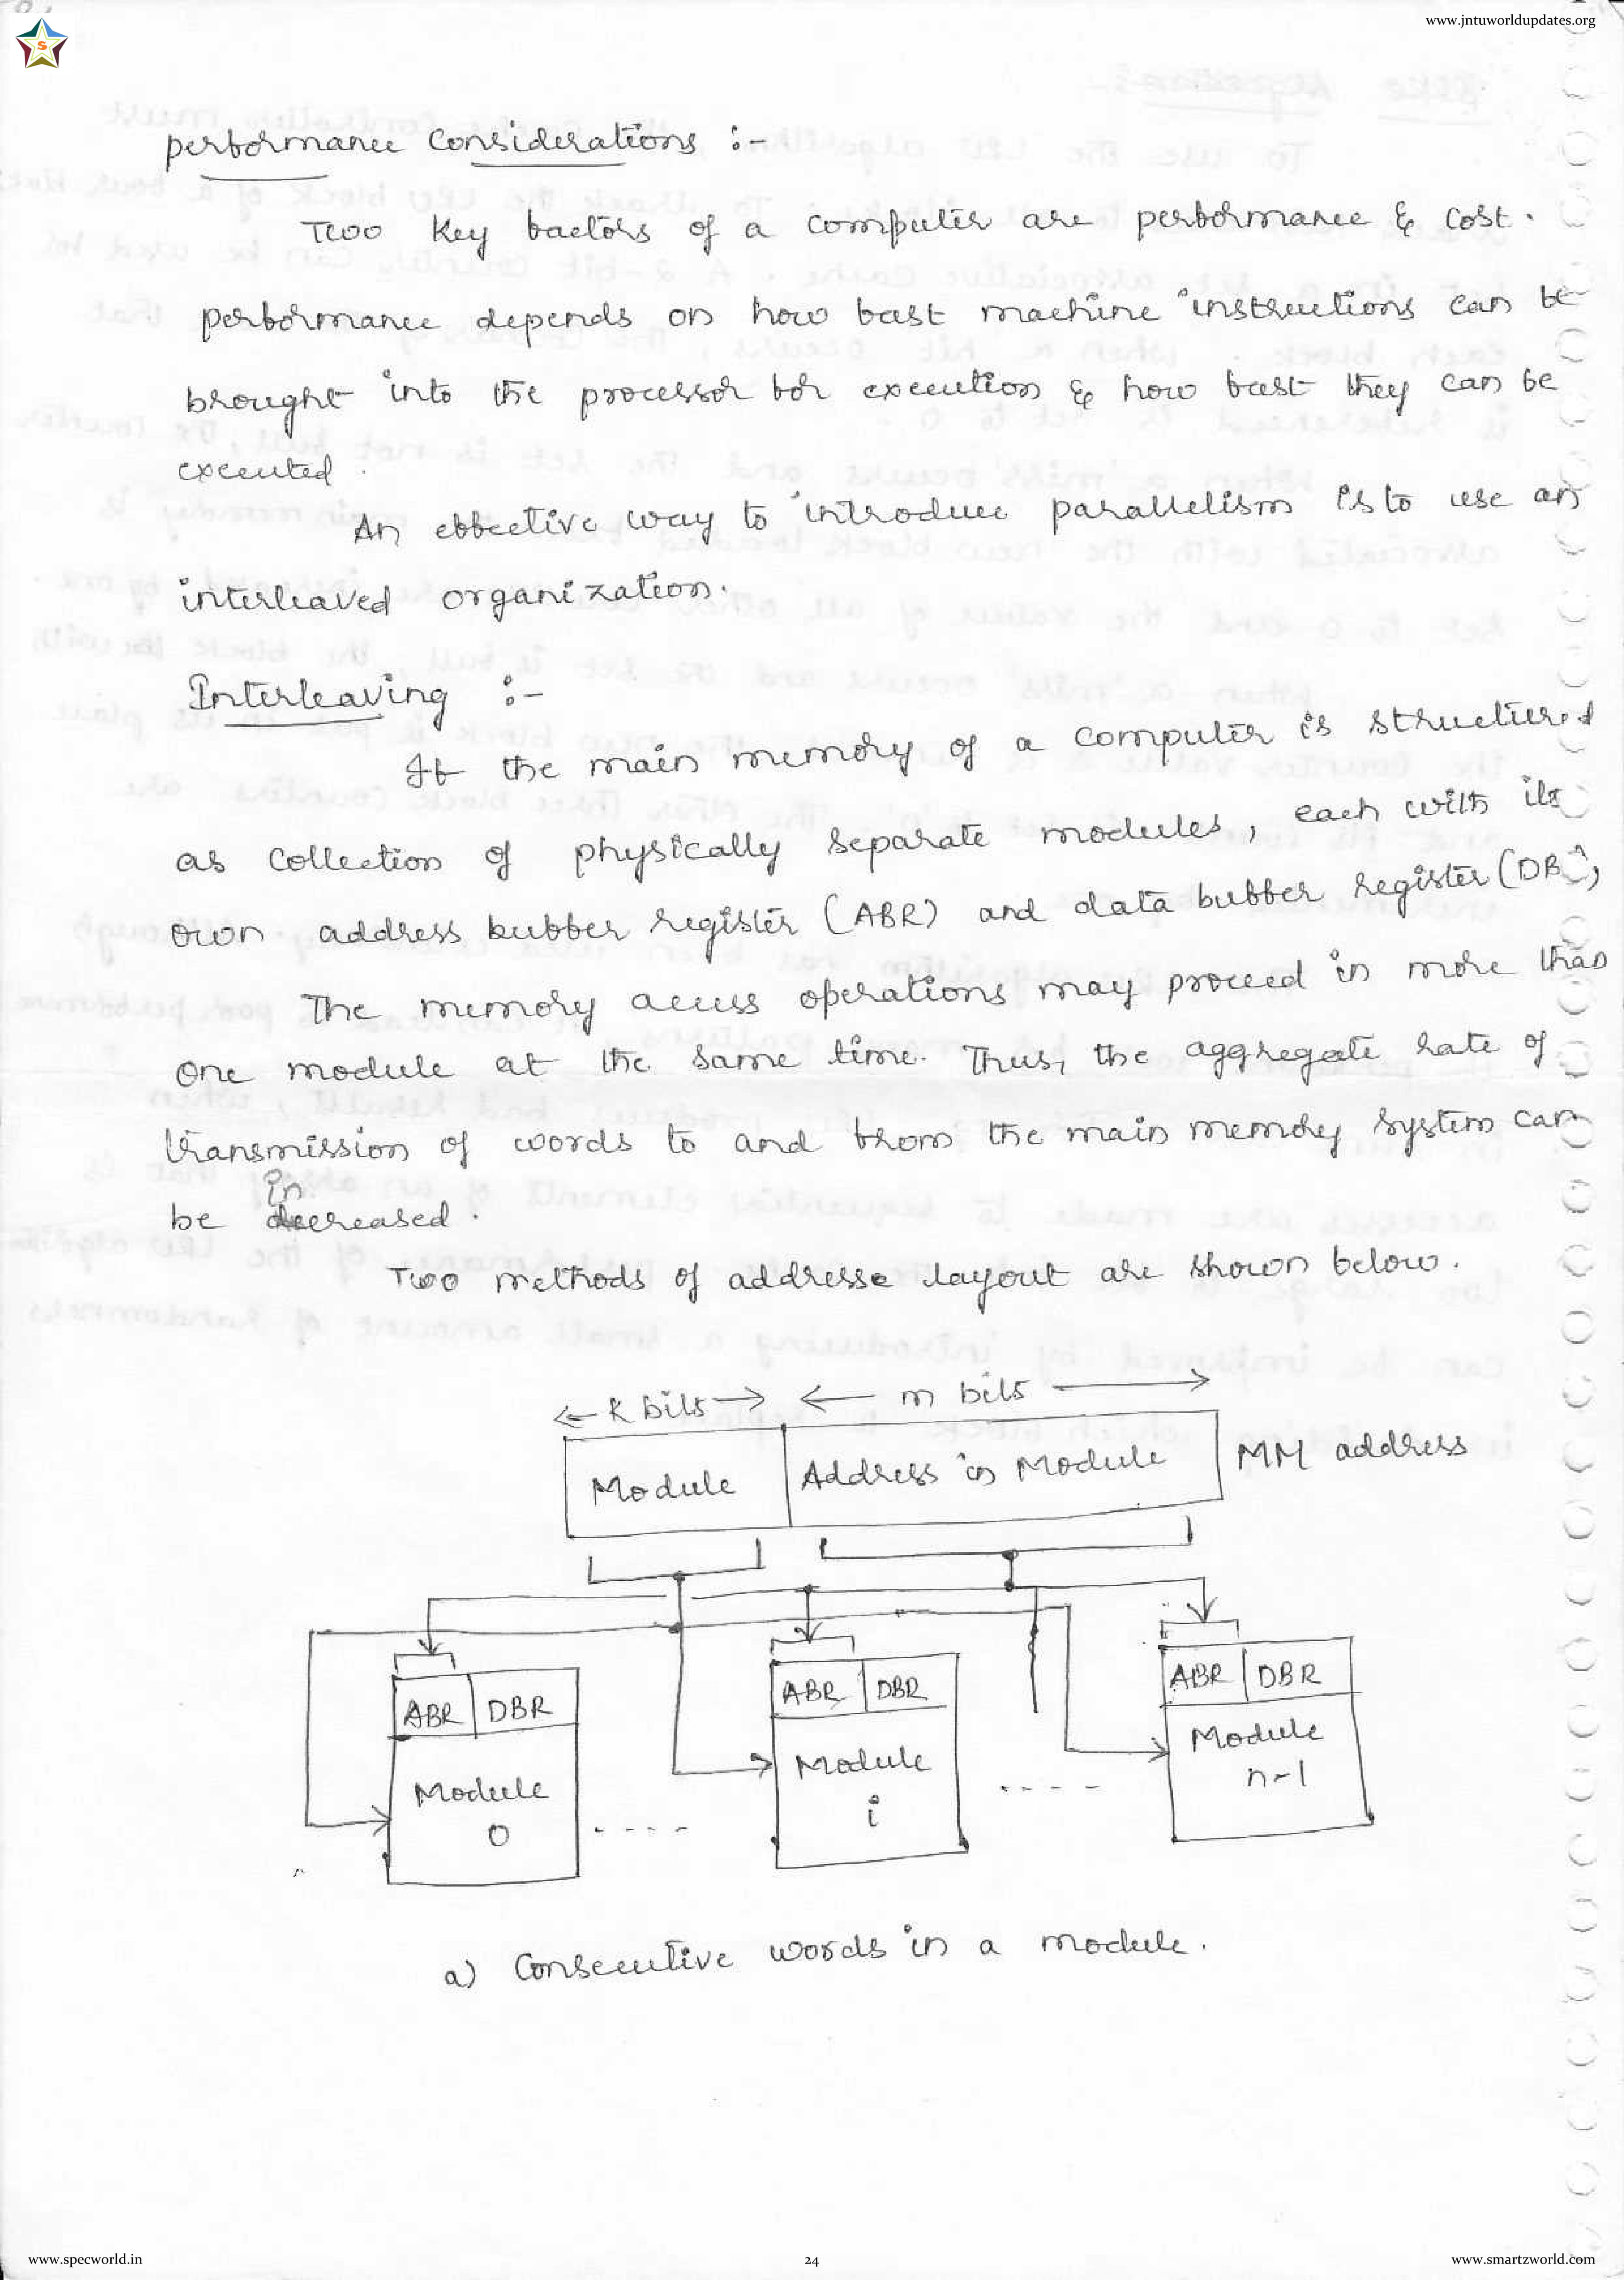 www.jntuworldupdates.org
S
performance Considerations :-
Two key factors of a computer are performance & cost.
performance depends on how fast machine instructions can be
brought into the processor for execution & how fast they can be
executed.
An effective way to introduce parallelism is to use an
interleaved organization.
Interleaving :-
If the main memory of a computer is structured
as collection of physically separate modules, each with its
own address buffer register (ABR) and data buffer register (DBR),
The memory access operations may proceed in more than
one module at the same time. Thus, the aggregate rate of
transmission of words to and from the main memory system can
in
be decreased.
Two methods of addresse layout are shown below.
k bits m bits
Module Address in Module MM address
ABR DBR ABR DBR ABR DBR
Module 0 Module i Module n-1
a) Consecutive words in a module.
www.specworld.in 24 www.smartzworld.com